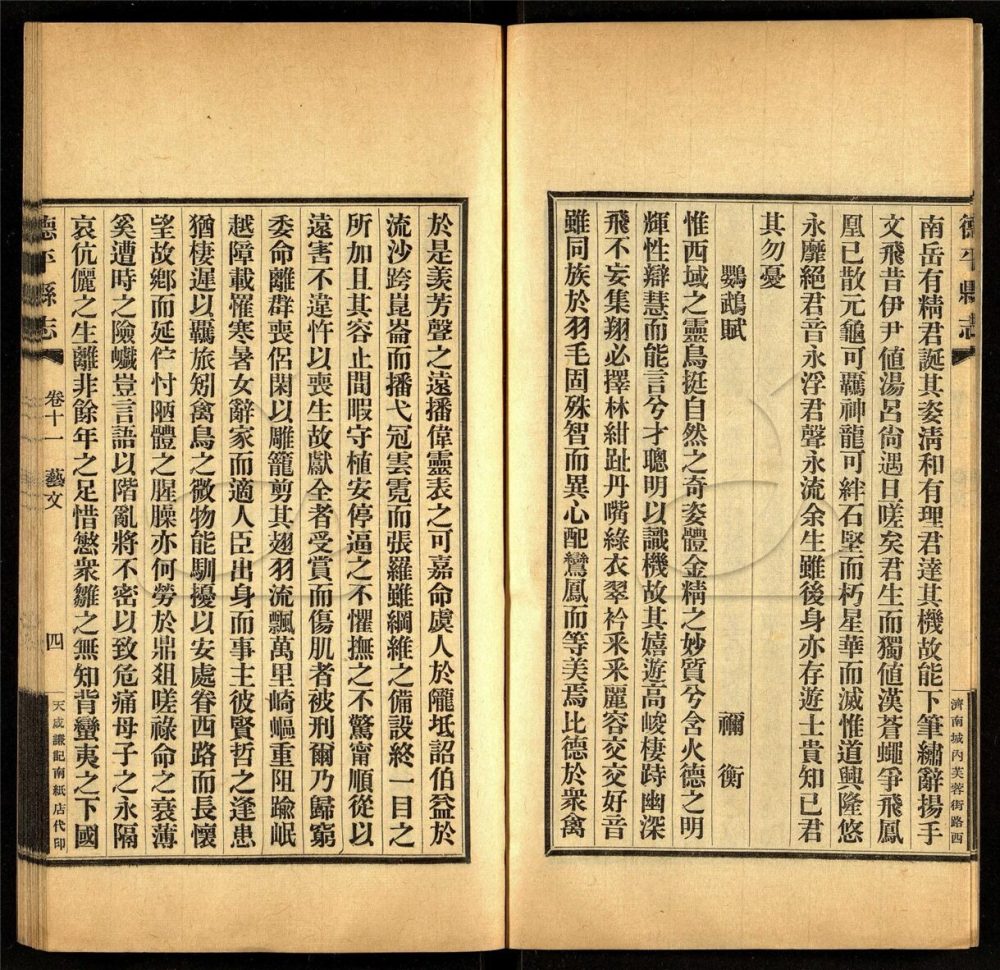 德平縣志
濟南城內芙蓉街路西
南岳有精君誕其姿淸和有理君達其機故能下筆繡辭揚手
文飛昔伊尹値湯呂尙遇旦嗟矣君生而獨値漢蒼蠅爭飛鳳
凰已散元龜可羈神龍可絆石堅而朽星華而滅惟道興隆悠
永靡絕君音永浮君聲永流余生雖後身亦存遊士貴知已君
其勿憂
鸚鵡賦
禰衡
惟西域之靈鳥挺自然之奇姿體金精之妙質兮含火德之明
輝性辯慧而能言兮才聰明以識機故其嬉遊高峻棲跱幽深
飛不妄集翔必擇林紺趾丹嘴綠衣翠衿釆釆麗容交交好音
雖同族於羽毛固殊智而異心配鸞鳳而等美焉比德於衆禽
於是羨芳聲之遠播偉靈表之可嘉命虞人於隴坻詔伯益於
流沙跨崑崙而播弋冠雲霓而張羅雖綱維之備設終一目之
所加且其容止閒暇守植安停逼之不懼撫之不驚甯順從以
遠害不違忤以喪生故獻全者受賞而傷肌者被刑爾乃歸窮
委命離群喪侶閑以雕籠剪其翅羽流飄萬里崎嶇重阻踰岷
越障載罹寒暑女辭家而適人臣出身而事主彼賢哲之逢患
猶棲遲以羈旅矧禽鳥之微物能馴擾以安處眷西路而長懷
望故鄕而延佇忖陋體之腥臊亦何勞於鼎爼嗟祿命之衰薄
奚遭時之險巇豈言語以階亂將不密以致危痛母子之永隔
哀伉儷之生離非餘年之足惜慾衆雛之無知背蠻夷之下國
德平縣志
卷十一
藝文
四
天成謙記南紙店代印